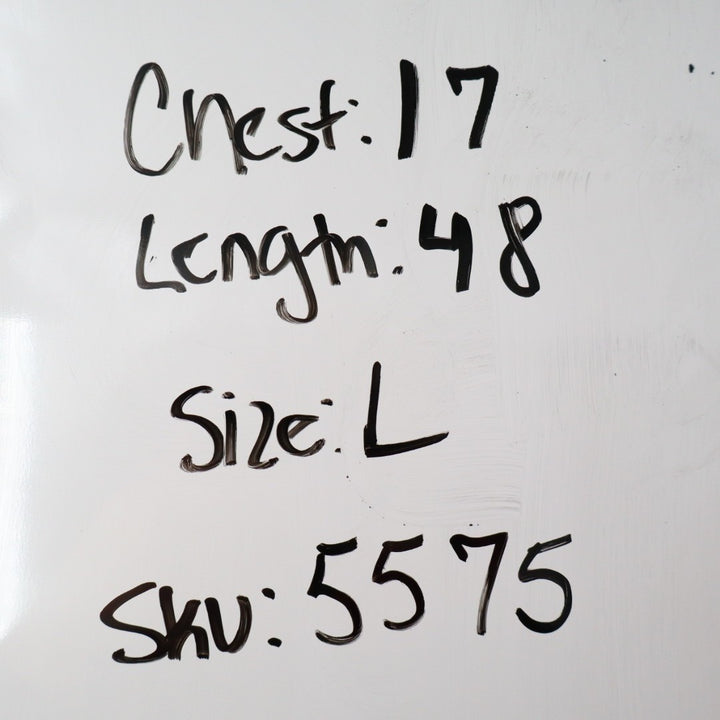 Chest: 17
Length: 48
Size: L
Sku: 5575